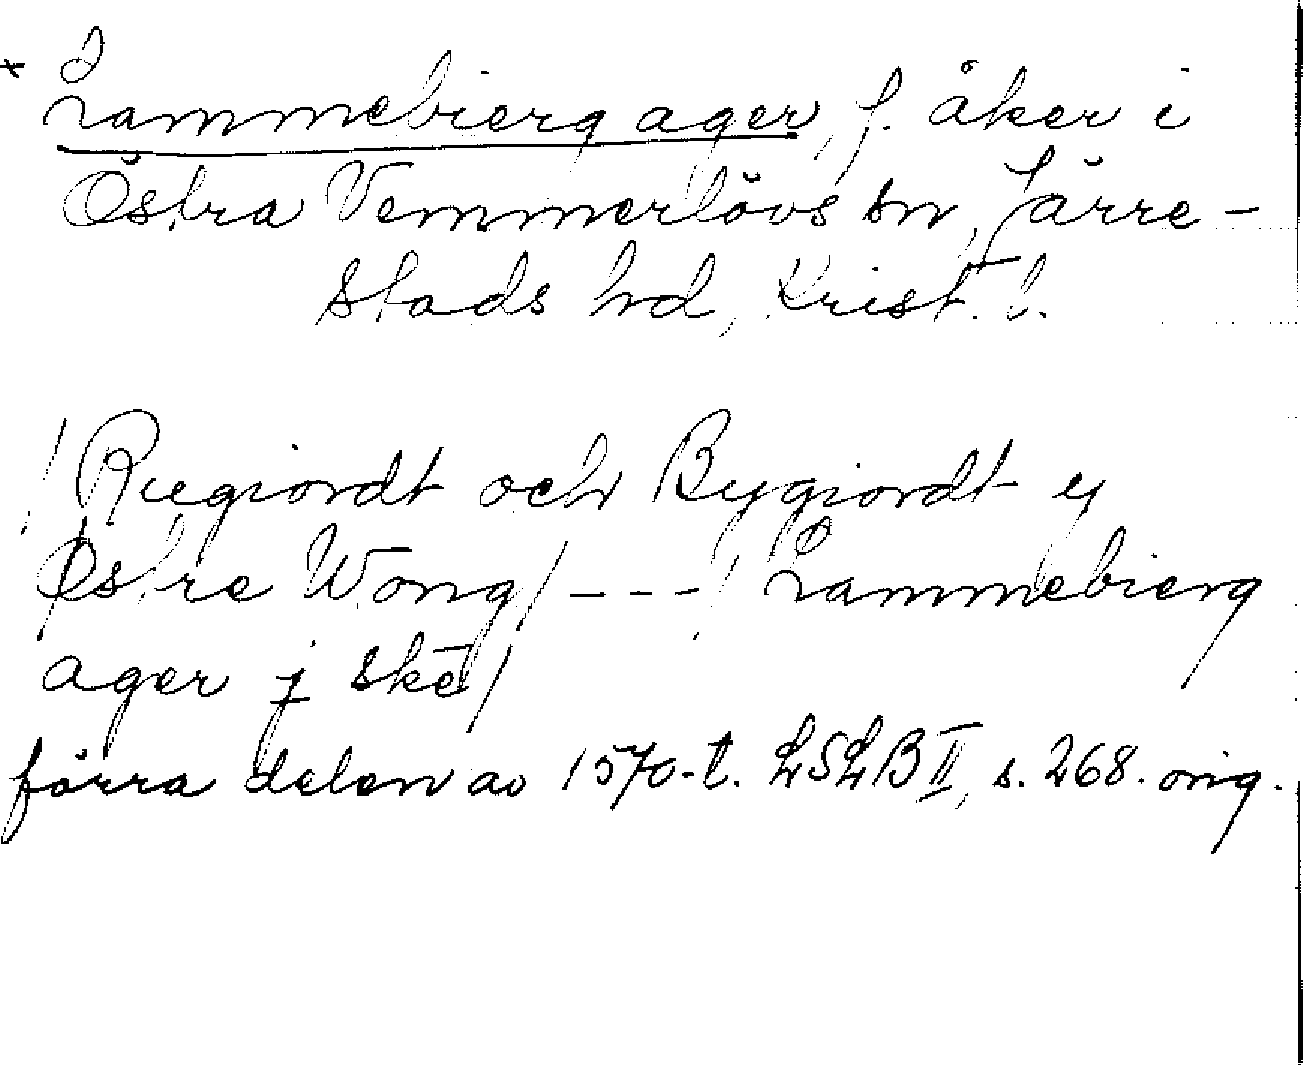 x
Lammebierg ager, f. åker i
Östra Vemmerlövs sn, Järre-
stads hd, Krist. l.
/Rugiordt och Bygiordt y
Østre Wong/ --- / Lammebierg
ager j skē/
förra delen av 1570-t. LSLB II, s. 268. orig.